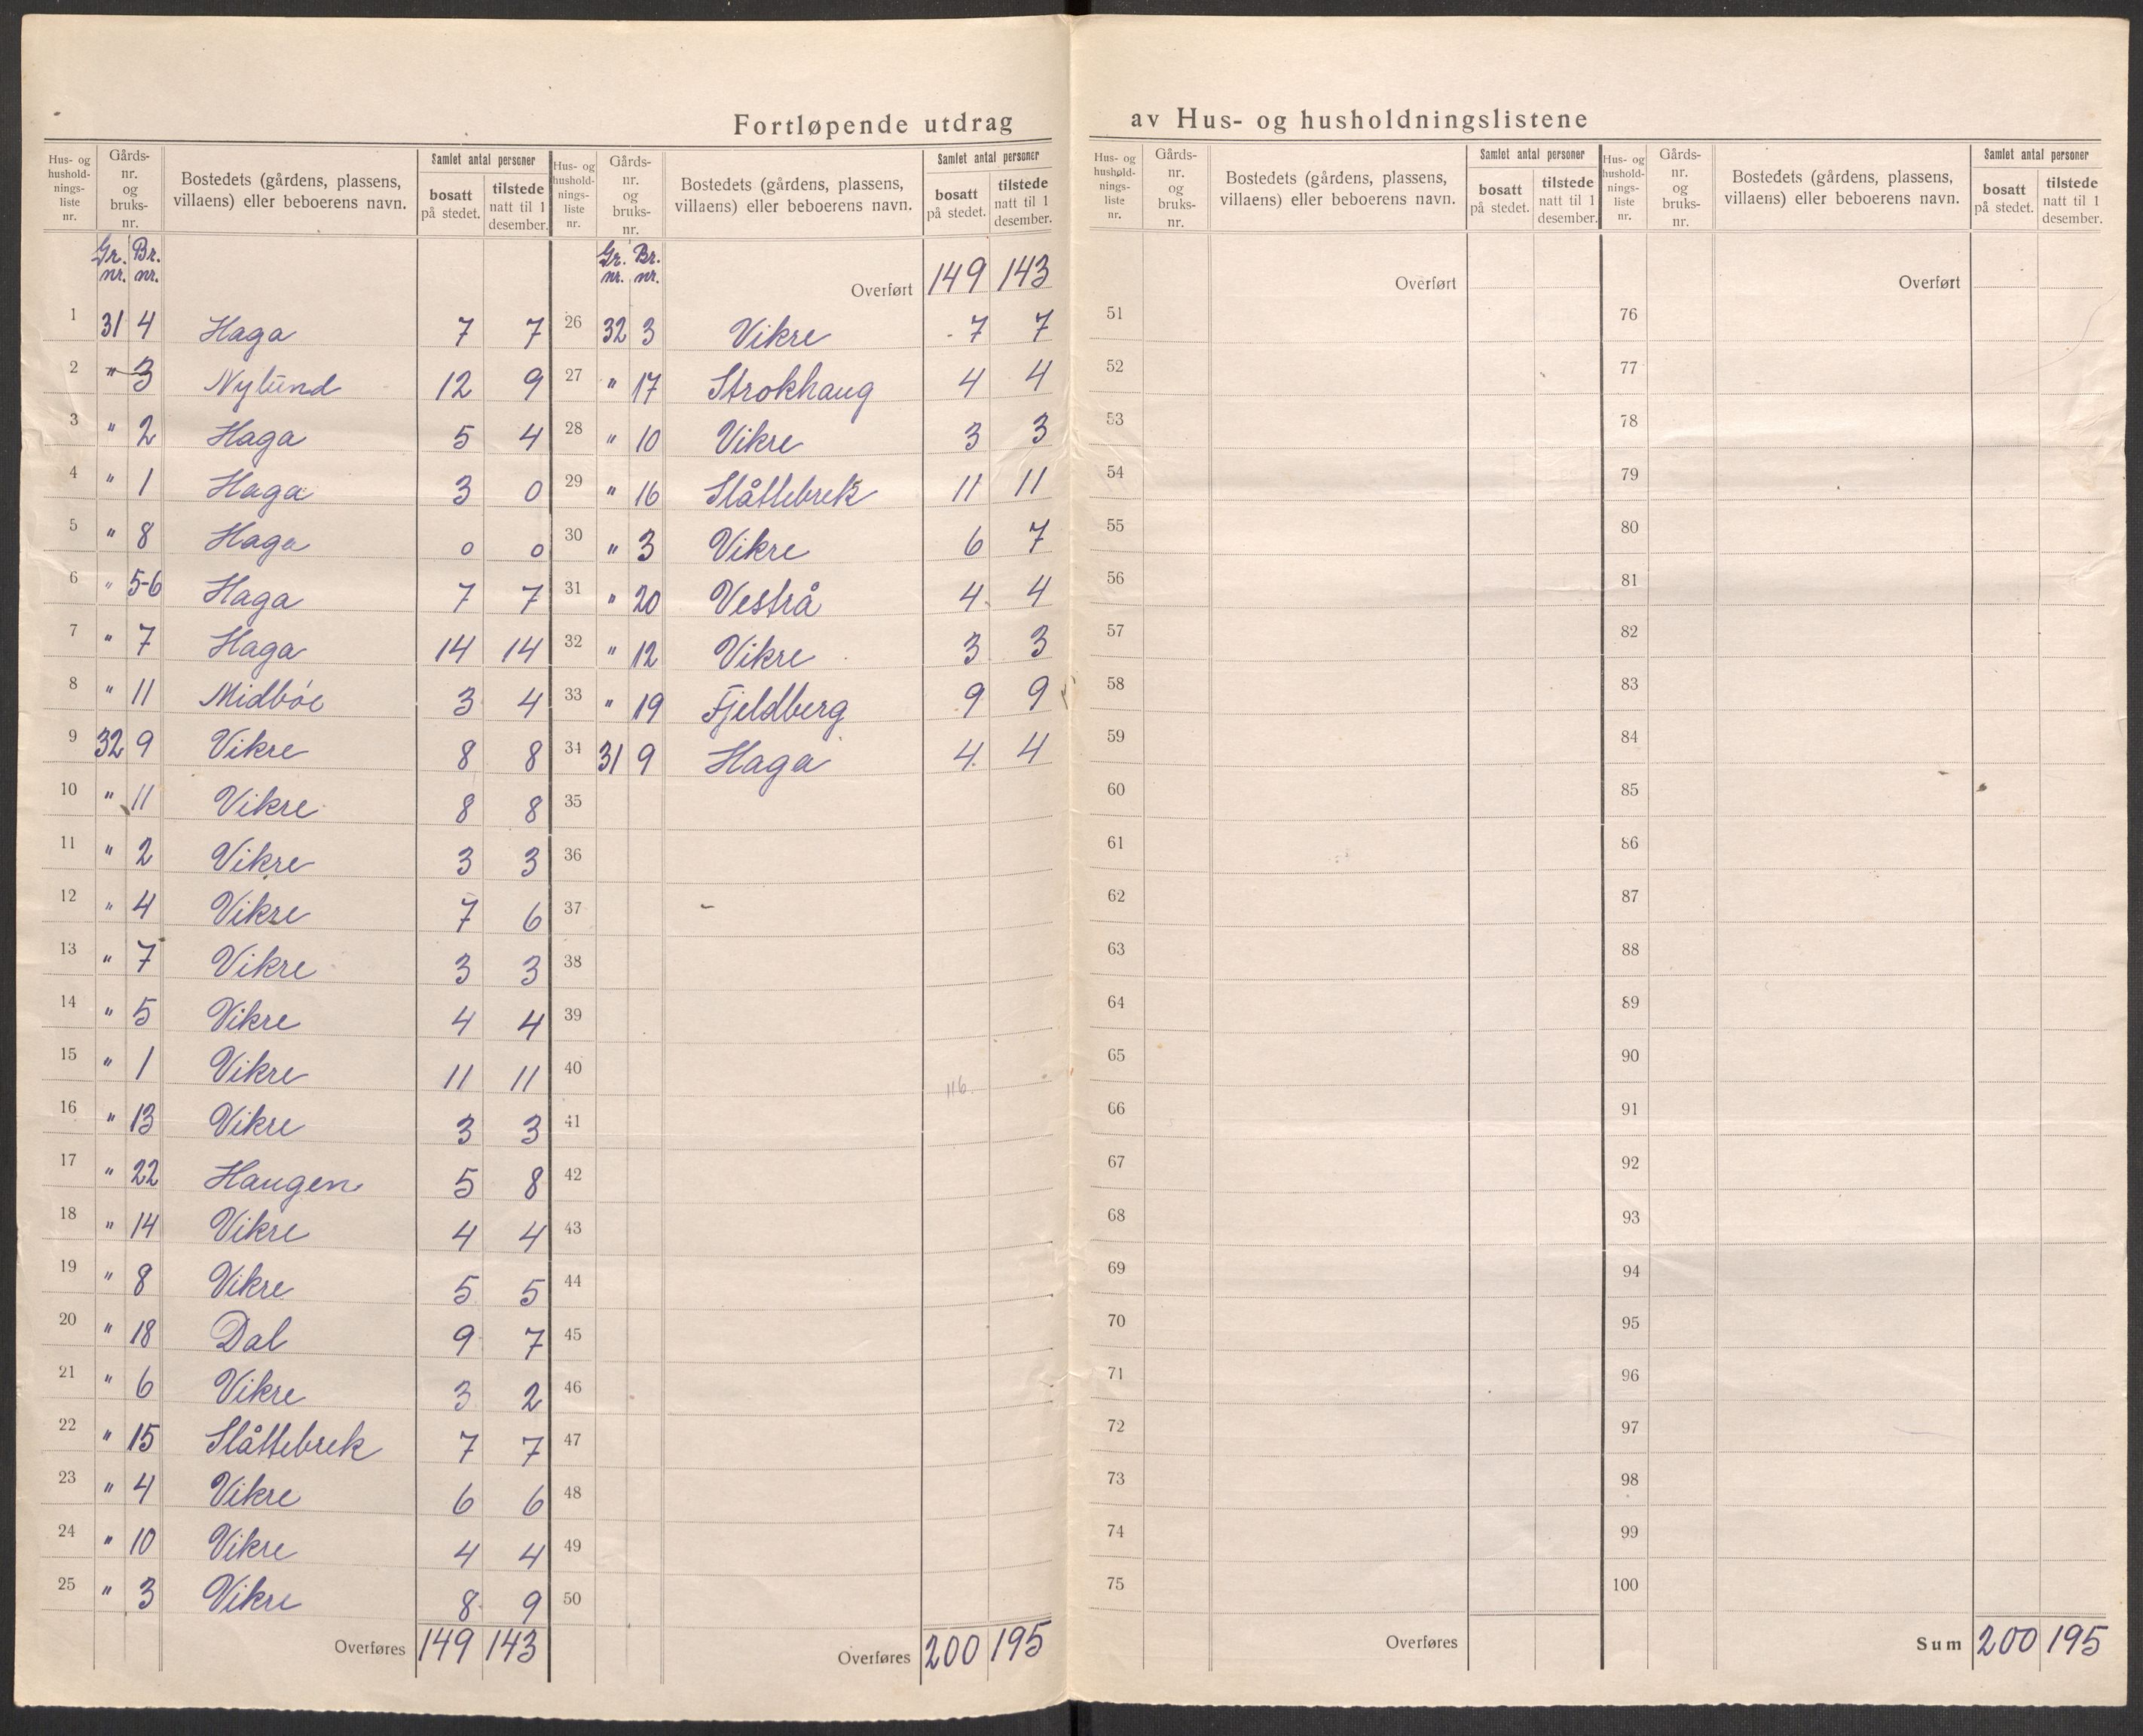 Fortløpende utdrag av Hus- og husholdningslistene
Hus- og hushold-nings-liste nr. Gårds-nr. og bruks-nr. Bostedets (gårdens, plassens, villaens) eller beboerens navn. Samlet antal personer bosatt på stedet. tilstede natt til 1 desember.
Gr. nr. Br. nr.
1 31 4 Haga 7 7
2 " 3 Nylund 12 9
3 " 2 Haga 5 4
4 " 1 Haga 3 0
5 " 8 Haga 0 0
6 " 5-6 Haga 7 7
7 " 7 Haga 14 14
8 " 11 Midbøe 3 4
9 32 9 Vikre 8 8
10 " 11 Vikre 8 8
11 " 2 Vikre 3 3
12 " 4 Vikre 7 6
13 " 7 Vikre 3 3
14 " 5 Vikre 4 4
15 " 1 Vikre 11 11
16 " 13 Vikre 3 3
17 " 22 Haugen 5 8
18 " 14 Vikre 4 4
19 " 8 Vikre 5 5
20 " 18 Dal 9 7
21 " 6 Vikre 3 2
22 " 15 Slåttebrek 7 7
23 " 4 Vikre 6 6
24 " 10 Vikre 4 4
25 " 3 Vikre 8 9
Overføres 149 143
Hus- og hushold-nings-liste nr. Gårds-nr. og bruks-nr. Bostedets (gårdens, plassens, villaens) eller beboerens navn. Samlet antal personer bosatt på stedet. tilstede natt til 1 desember.
Gr. nr. Br. nr.
Overført 149 143
26 32 3 Vikre 7 7
27 " 17 Strokhaug 4 4
28 " 10 Vikre 3 3
29 " 16 Slåttebrek 11 11
30 " 3 Vikre 6 7
31 " 20 Vestrå 4 4
32 " 12 Vikre 3 3
33 " 19 Fjeldberg 9 9
34 31 9 Haga 4 4
35
36
37
38
39
40
116.
41
42
43
44
45
46
47
48
49
50
Overføres 200 195
Hus- og hushold-nings-liste nr. Gårds-nr. og bruks-nr. Bostedets (gårdens, plassens, villaens) eller beboerens navn. Samlet antal personer bosatt på stedet. tilstede natt til 1 desember.
Overført
51
52
53
54
55
56
57
58
59
60
61
62
63
64
65
66
67
68
69
70
71
72
73
74
75
Overføres
Hus- og hushold-nings-liste nr. Gårds-nr. og bruks-nr. Bostedets (gårdens, plassens, villaens) eller beboerens navn. Samlet antal personer bosatt på stedet. tilstede natt til 1 desember.
Overført
76
77
78
79
80
81
82
83
84
85
86
87
88
89
90
91
92
93
94
95
96
97
98
99
100
Sum 200 195